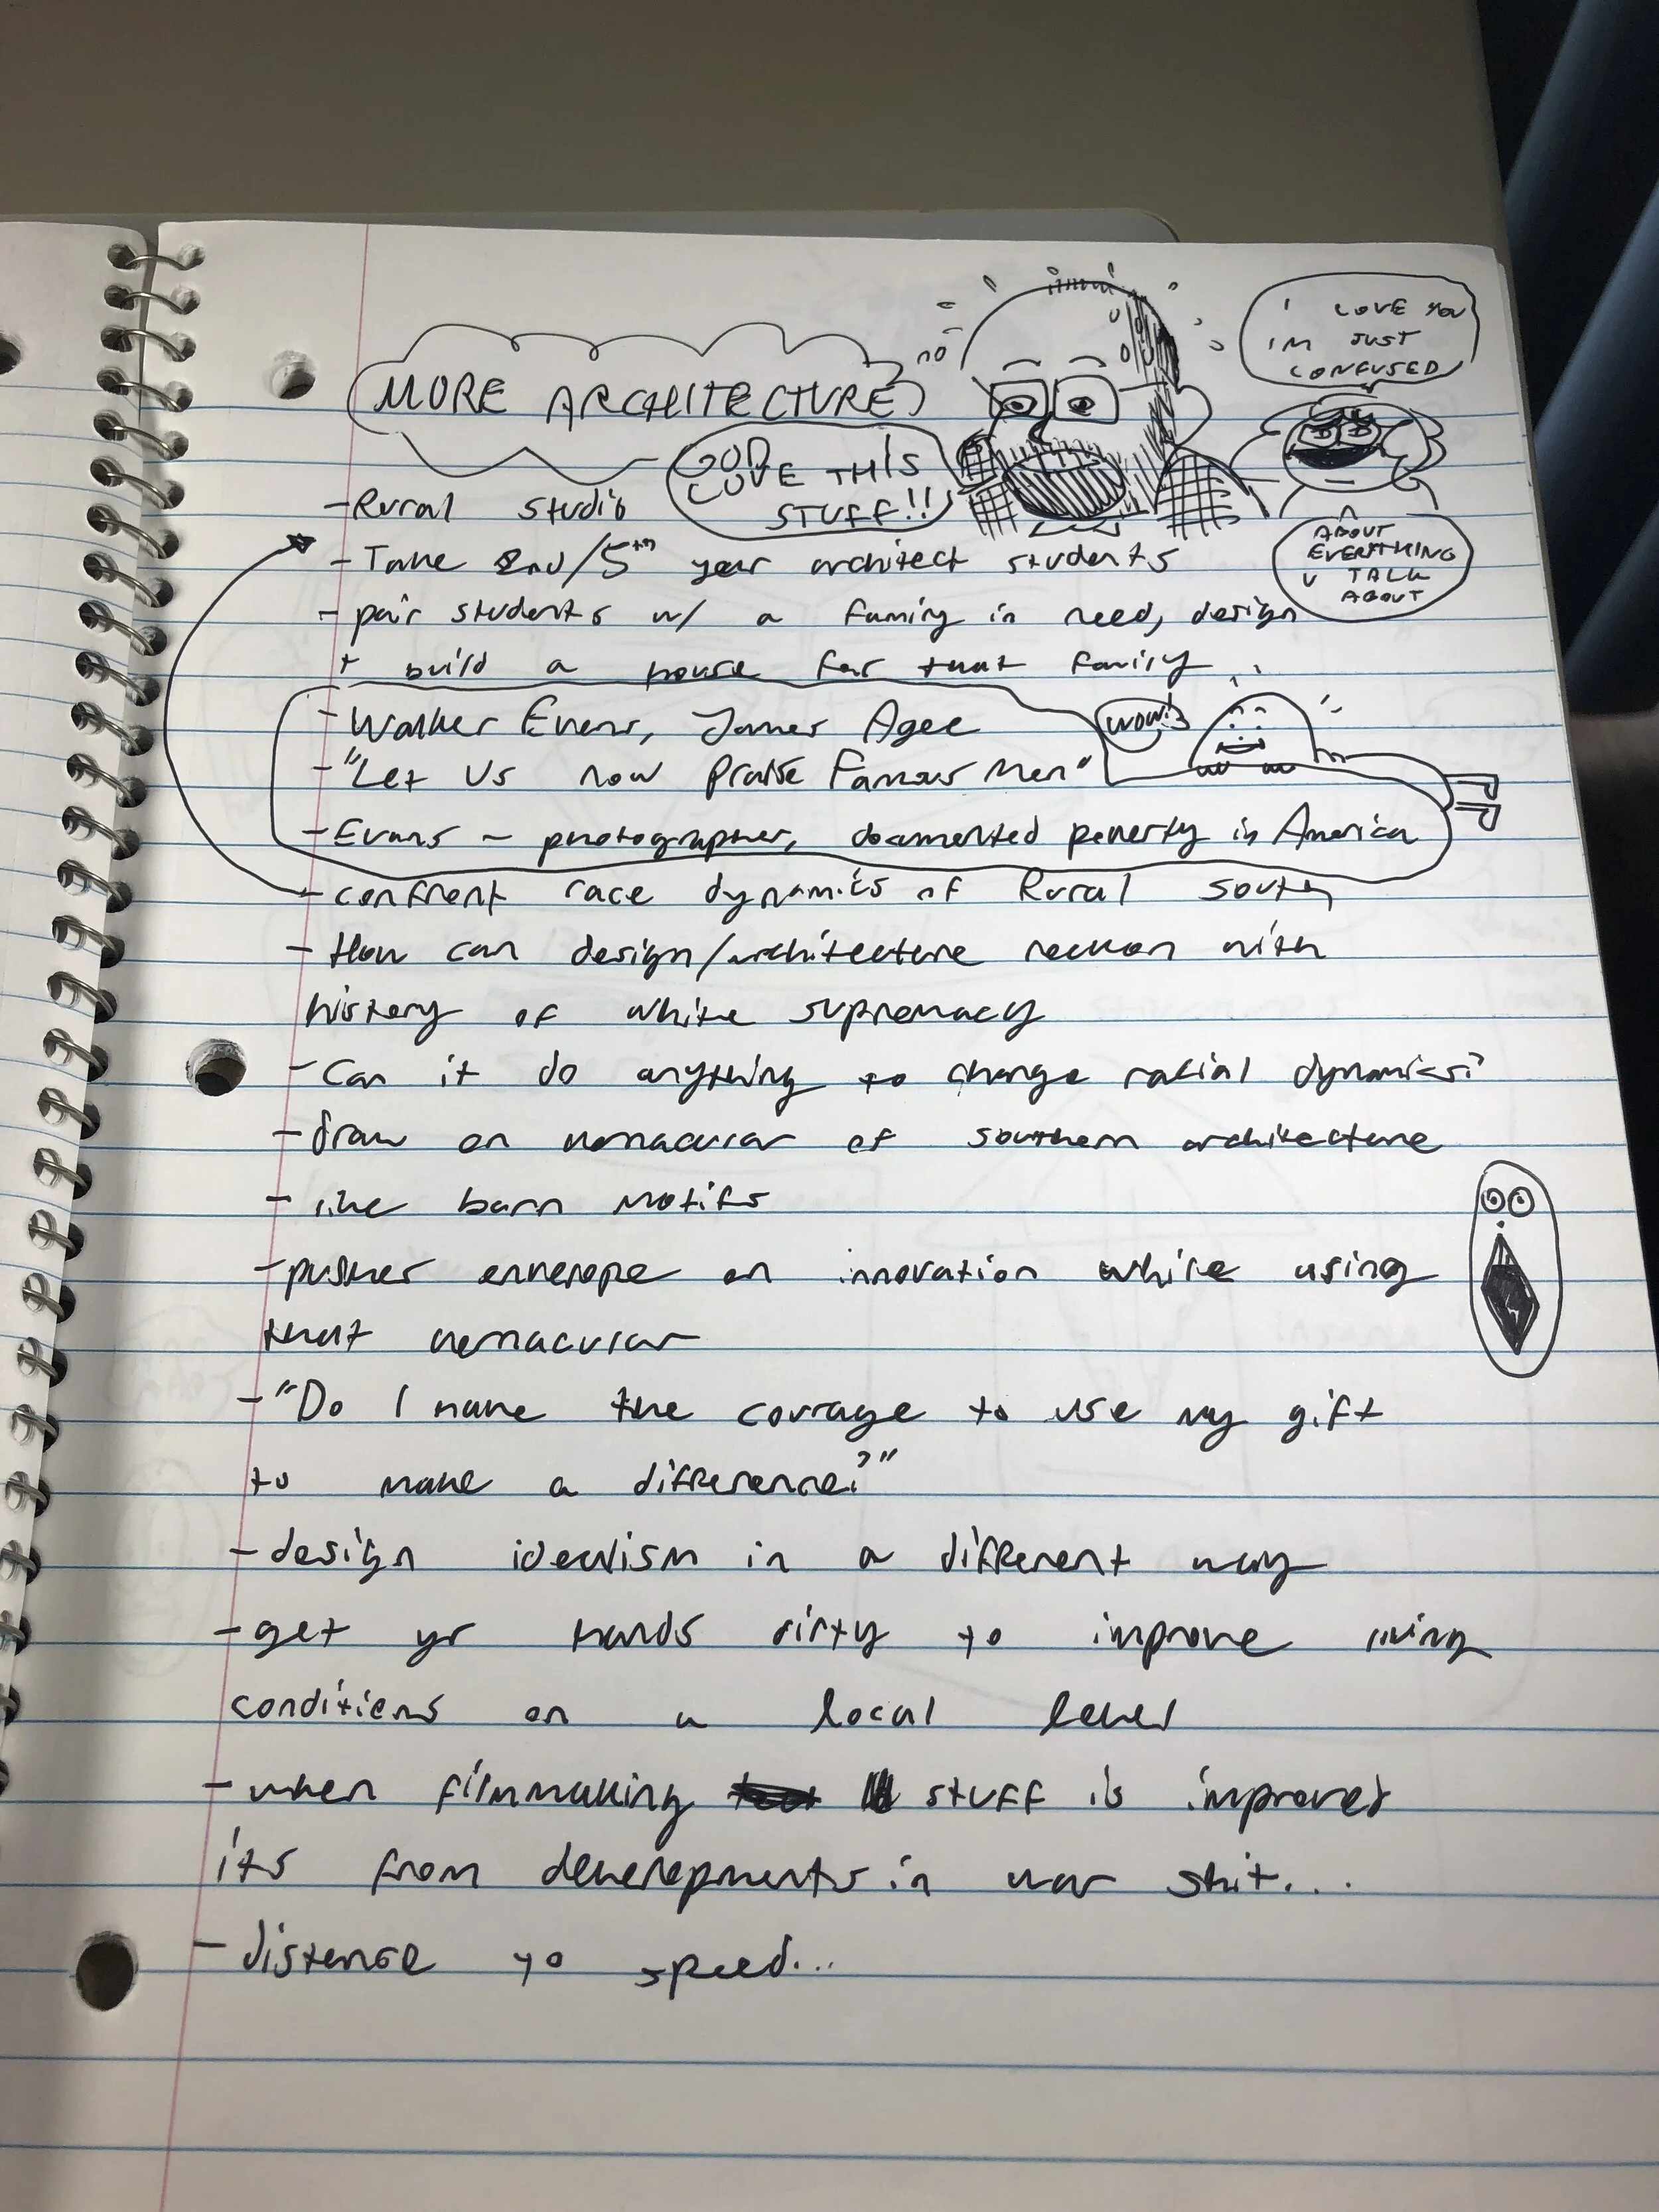 MORE ARCHITECTURE
GOD
LOVE THIS
STUFF!!
I LOVE YOU
IM JUST
CONFUSED
ABOUT
EVERYTHING
U TALK
ABOUT
- Rural studio
- Take 2nd/5th year architect students
- pair students w/ a family in need, design
+ build a house for that family
- Walker Evans, James Agee
WOW!
- "Let Us now Praise Famous Men"
- Evans ~ photographer, documented poverty in America
- confront race dynamics of Rural south
- How can design/architecture reckon with
history of white supremacy
- Can it do anything to change racial dynamics?
- draw on vernacular of southern architecture
- like barn motifs
- pushes envelope on innovation while using
that vernacular
- "Do I have the courage to use my gift
to make a difference?"
- design idealism in a different way
- get yr hands dirty to improve living
conditions on a local level
- when filmmaking stuff is improved
its from developments in war shit...
- distance to speed...